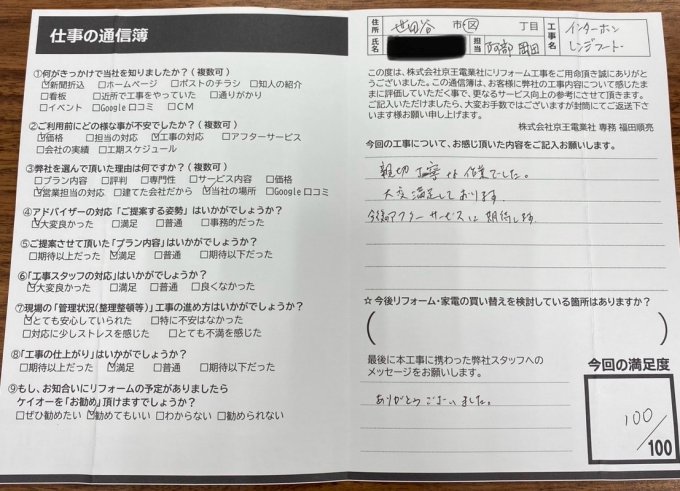 仕事の通信簿
①何がきっかけで当社を知りましたか？(複数可)
☑新聞折込 □ホームページ □ポストのチラシ □知人の紹介
□看板 □近所で工事をやっていた □通りがかり
□イベント □Google口コミ □CM
②ご利用前にどの様な事が不安でしたか？(複数可)
☑価格 □担当の対応 ☑工事の対応 □アフターサービス
□会社の実績 □工期スケジュール
③弊社を選んで頂いた理由は何ですか？(複数可)
□プラン内容 □評判 □専門性 □サービス内容 □価格
☑営業担当の対応 □建てた会社だから ☑当社の場所 □Google口コミ
④アドバイザーの対応「ご提案する姿勢」はいかがでしょうか？
☑大変良かった □満足 □普通 □事務的だった
⑤ご提案させて頂いた「プラン内容」はいかがでしょうか？
□期待以上だった ☑満足 □普通 □期待以下だった
⑥「工事スタッフの対応」はいかがでしょうか？
☑大変良かった □満足 □普通 □良くなかった
⑦現場の「管理状況(整理整頓等)」工事の進め方はいかがでしょうか？
☑とても安心していられた □特に不安はなかった
□対応に少しストレスを感じた □とても不満を感じた
⑧「工事の仕上がり」はいかがでしょうか？
□期待以上だった ☑満足 □普通 □期待以下だった
⑨もし、お知合いにリフォームの予定がありましたら
ケイオーを「お勧め」頂けますでしょうか？
□ぜひ勧めたい ☑勧めてもいい □わからない □勧められない
住所 世田谷 市・区 丁目
氏名 担当 阿部 岡田
工事名 インターホン
レンジフード
この度は、株式会社京王電業社にリフォーム工事をご用命頂き誠にありがと
うございました。この通信簿は、お客様に弊社の工事内容について感じたま
まに評価していただく事で、更なるサービス向上の参考にさせて頂きます。
ご記入いただけましたら、大変お手数ではございますが封筒にてご返送下さ
います様お願い申し上げます。
株式会社京王電業社 専務 福田順亮
今回の工事について、お感じ頂いた内容をご記入お願いします。
親切 丁寧な作業でした。
大変満足しております。
今後のアフターサービスに期待します。
☆今後リフォーム・家電の買い替えを検討している箇所はありますか？
( )
最後に本工事に携わった弊社スタッフへの
メッセージをお願いします。
ありがとうございました。
今回の満足度
100/100